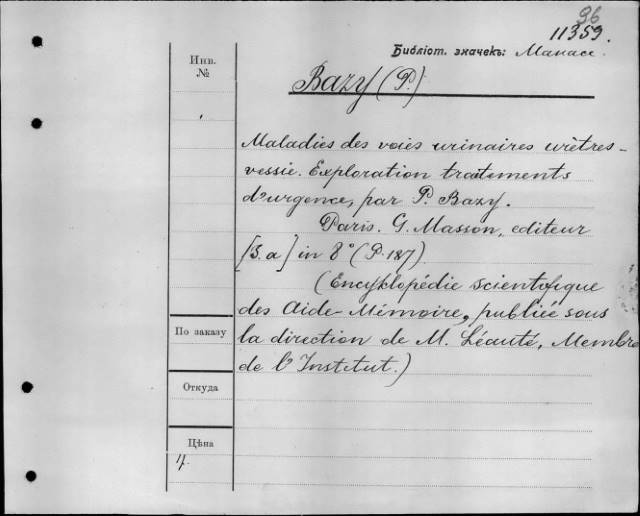 96
11359.
Библіот. значекъ: Манасе.
Инв.
№
Bazy (P.)
Maladies des voies urinaires urètres-
vessie. Exploration traitements
d'urgence, par P. Bazy.
Paris. G. Masson, editeur
[S. a] in 8° (P. 187).
(Encyklopédie scientifique
des Aide-Mémoire, publiée sous
По заказу
la direction de M. Léauté, Membre
de l'Institut.)
Откуда
Цѣна